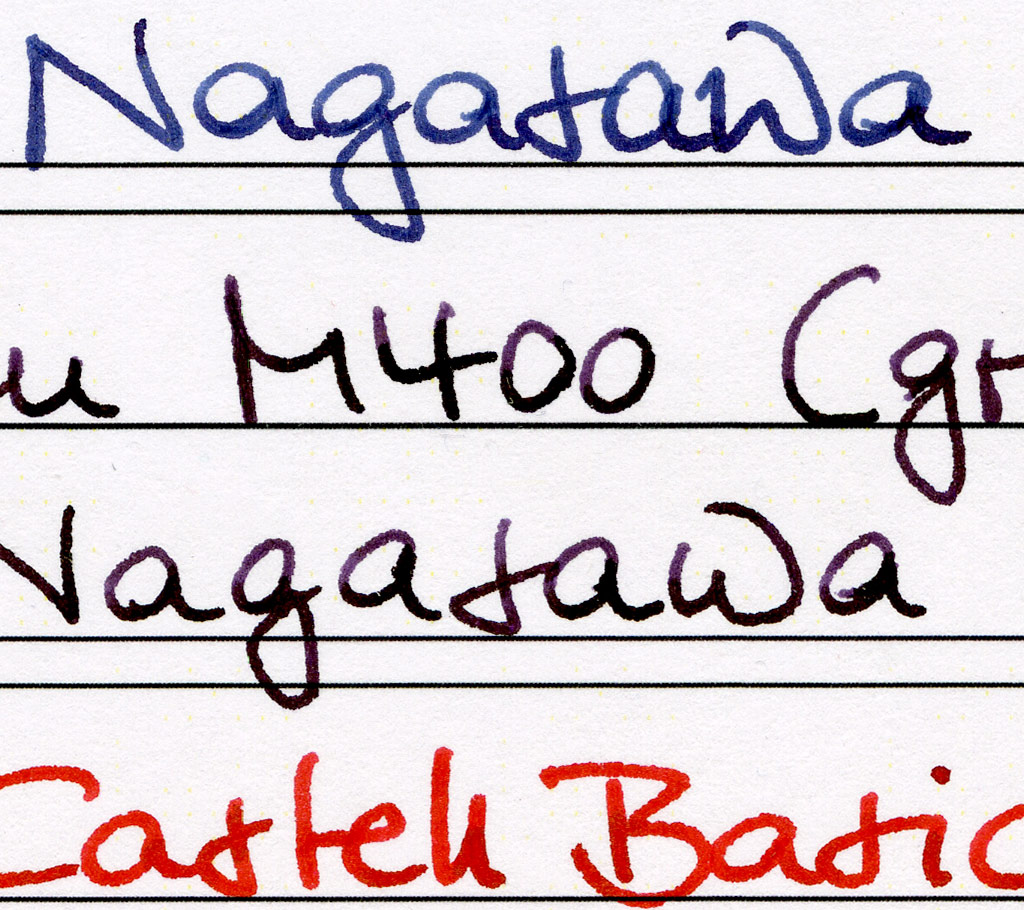 Nagasawa
u M400 (gr
Nagasawa
Castell Basic